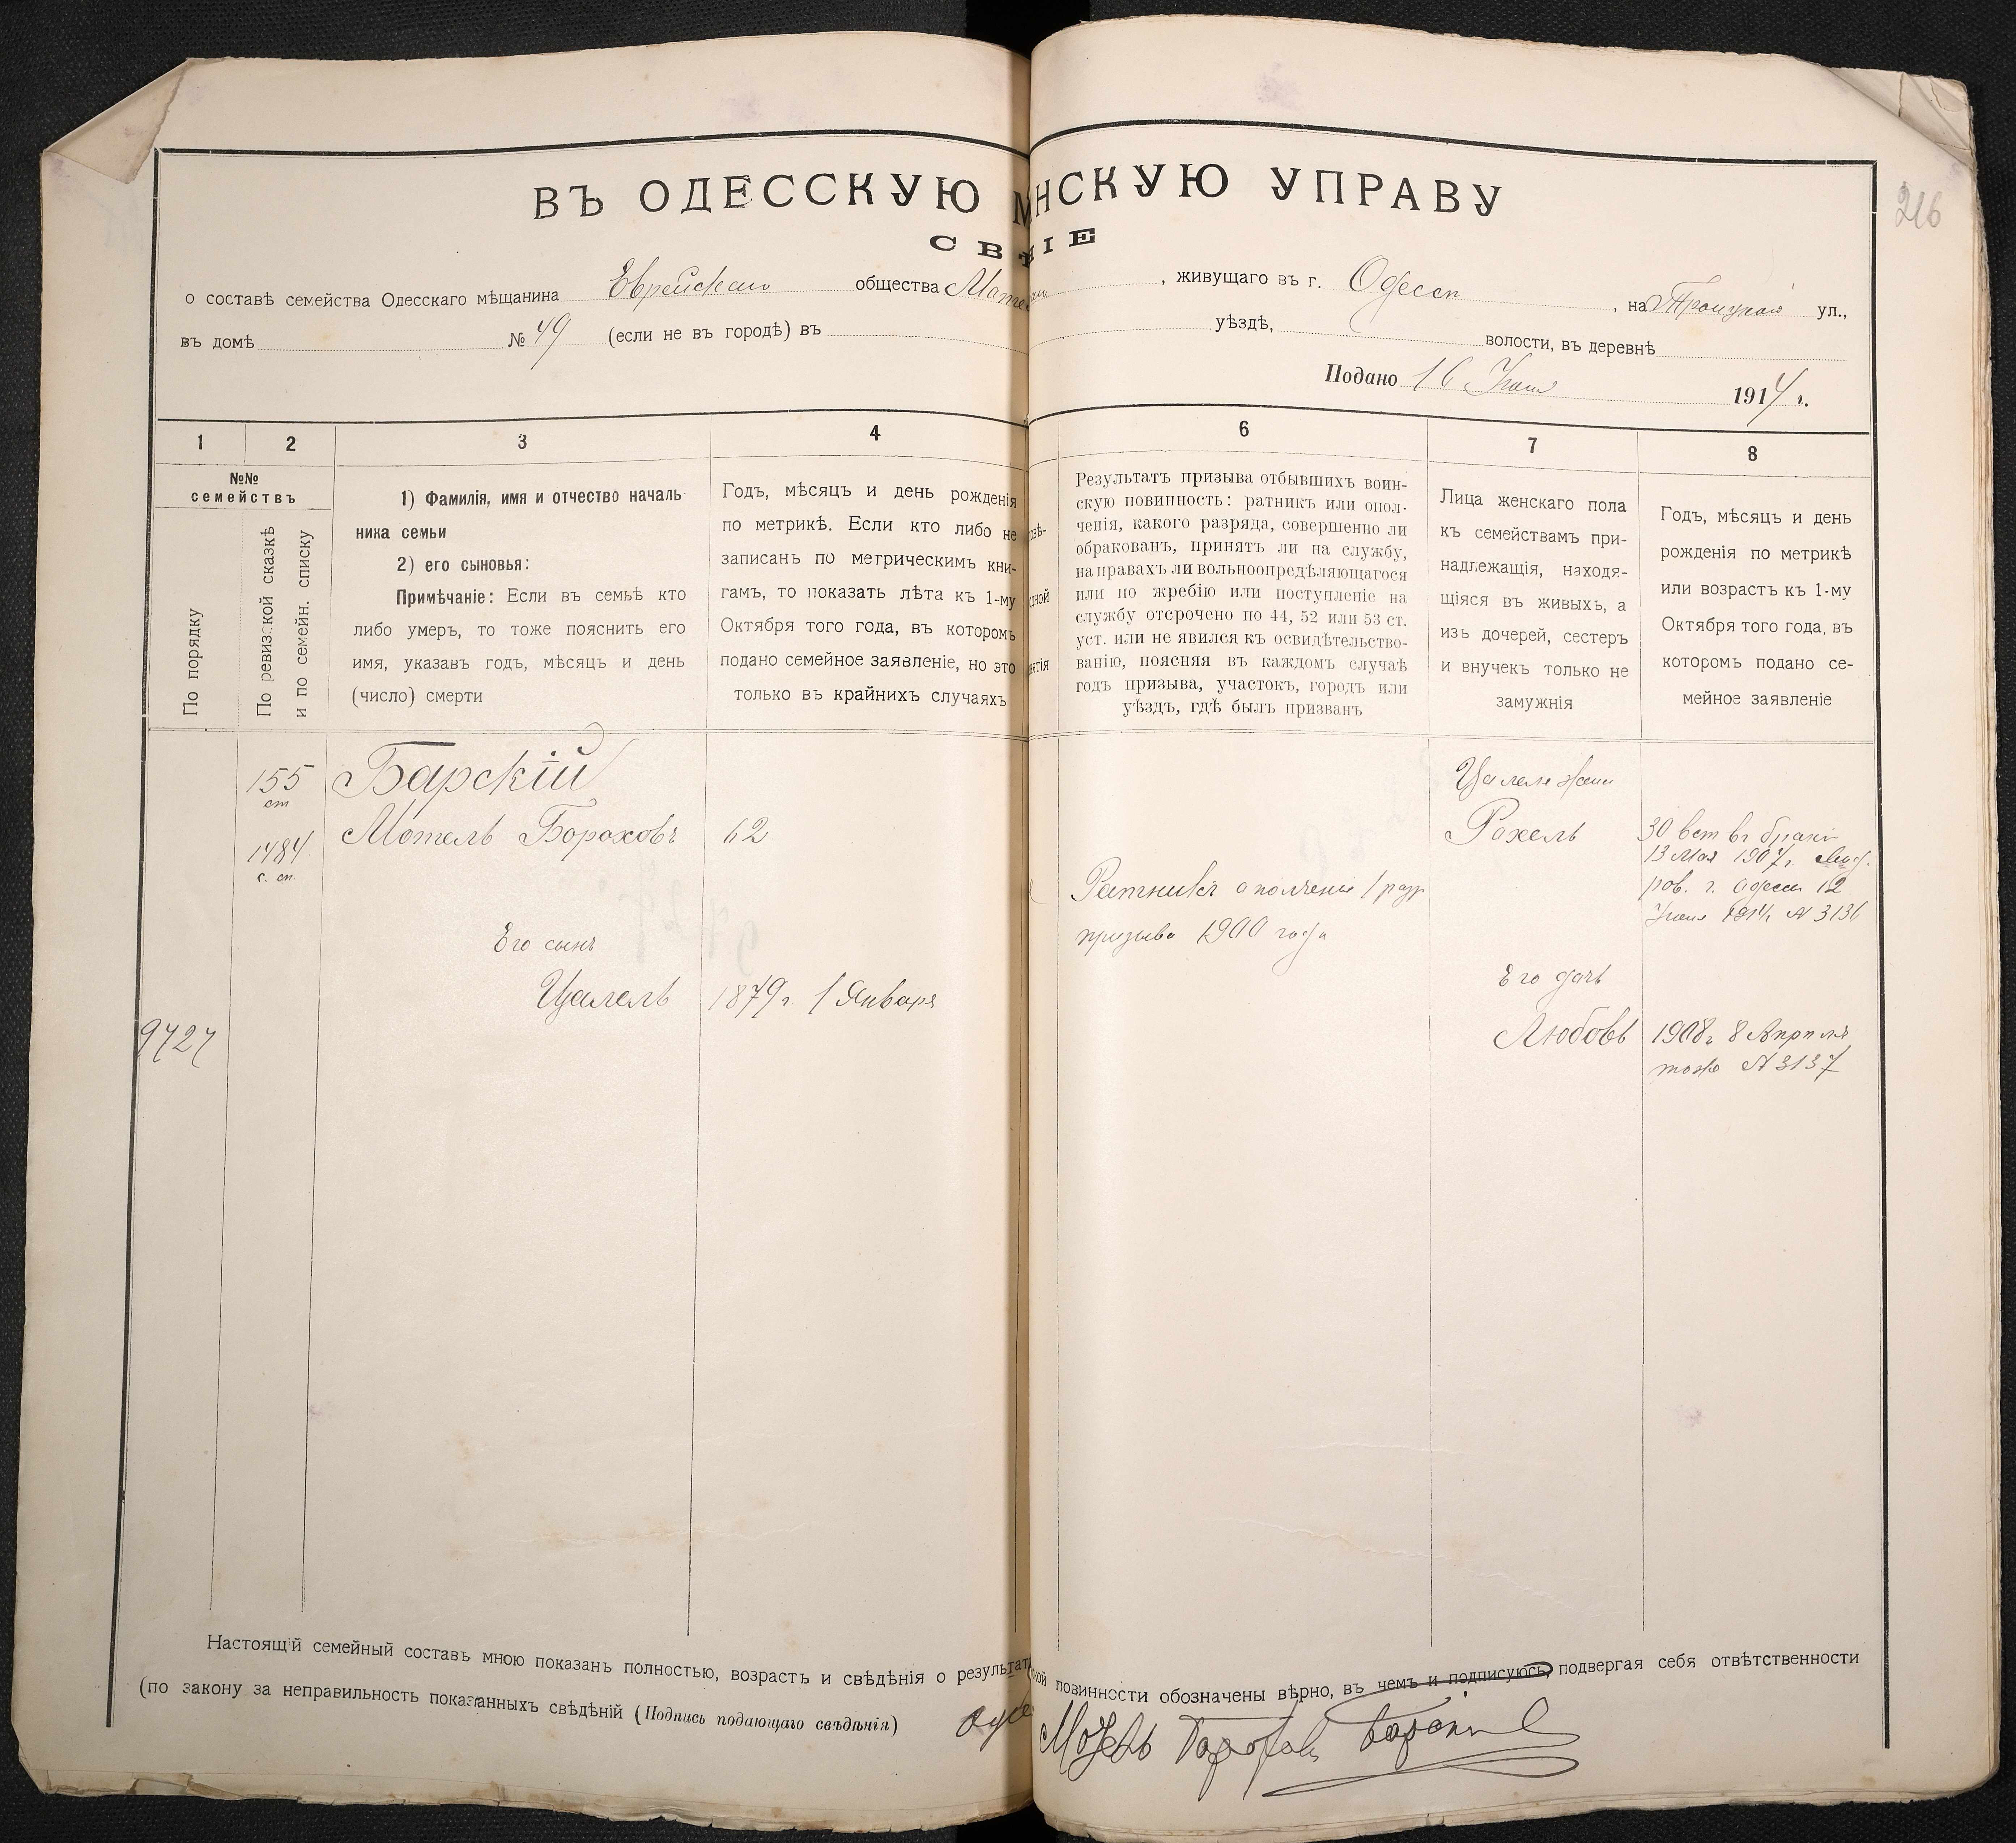 216
ВЪ ОДЕССКУЮ М НСКУЮ УПРАВУ
СВ НІЕ
о составѣ семейства Одесскаго мѣщанина Еврейскаго общества , живущаго въ г. Одессѣ , на Троицкой ул.,
въ домѣ № 49 (если не въ городѣ) въ уѣздѣ, волости, въ деревнѣ
Подано 16 1914 г.
1 2 3 4 6 7 8
№№
семействъ
По порядку
По ревизской сказкѣ
и по семейн. списку
1) Фамилія, имя и отчество началь
ника семьи
2) его сыновья:
Примѣчаніе: Если въ семьѣ кто
либо умеръ, то тоже пояснить его
имя, указавъ годъ, мѣсяцъ и день
(число) смерти
Годъ, мѣсяцъ и день рожденія
по метрикѣ. Если кто либо не
записанъ по метрическимъ кни-
гамъ, то показать лѣта къ 1-му
Октября того года, въ которомъ
подано семейное заявленіе, но это
только въ крайнихъ случаяхъ
Результатъ призыва отбывшихъ воин-
скую повинность: ратникъ или опол-
ченія, какого разряда, совершенно ли
обракованъ, принятъ ли на службу,
на правахъ ли вольноопредѣляющагося
или по жребію или поступленіе на
службу отсрочено по 44, 52 или 53 ст.
уст. или не явился къ освидѣтельство-
ванію, поясняя въ каждомъ случаѣ
годъ призыва, участокъ, городъ или
уѣздъ, гдѣ былъ призванъ
Лица женскаго пола
къ семействамъ при-
надлежащія, находя-
щіяся въ живыхъ, а
изъ дочерей, сестеръ
и внучекъ только не
замужнія
Годъ, мѣсяцъ и день
рожденія по метрикѣ
или возрастъ къ 1-му
Октября того года, въ
которомъ подано се-
мейное заявленіе
155
ст
1484
с. сп.
Барскій
Мотель Бороховъ 62
Его сынъ
Цалель 1879 г 1 Января
9727
Ратникъ ополченія 1 разр
призыва 1900 года
Цалеля жена
Рахель
30 вст въ бракъ
13 Мая 1907 г.
рав. г. Одессы 12
Іюня 1914 г. № 3136
Его дочь
Любовь 1908 г 8 Апрѣля
тоже № 3137
Настоящій семейный составъ мною показанъ полностью, возрастъ и свѣдѣнія о результат ской повинности обозначены вѣрно, въ чемъ и подписуюсь, подвергая себя отвѣтственности
(по закону за неправильность показанныхъ свѣдѣній (Подпись подающаго свѣдѣнія)